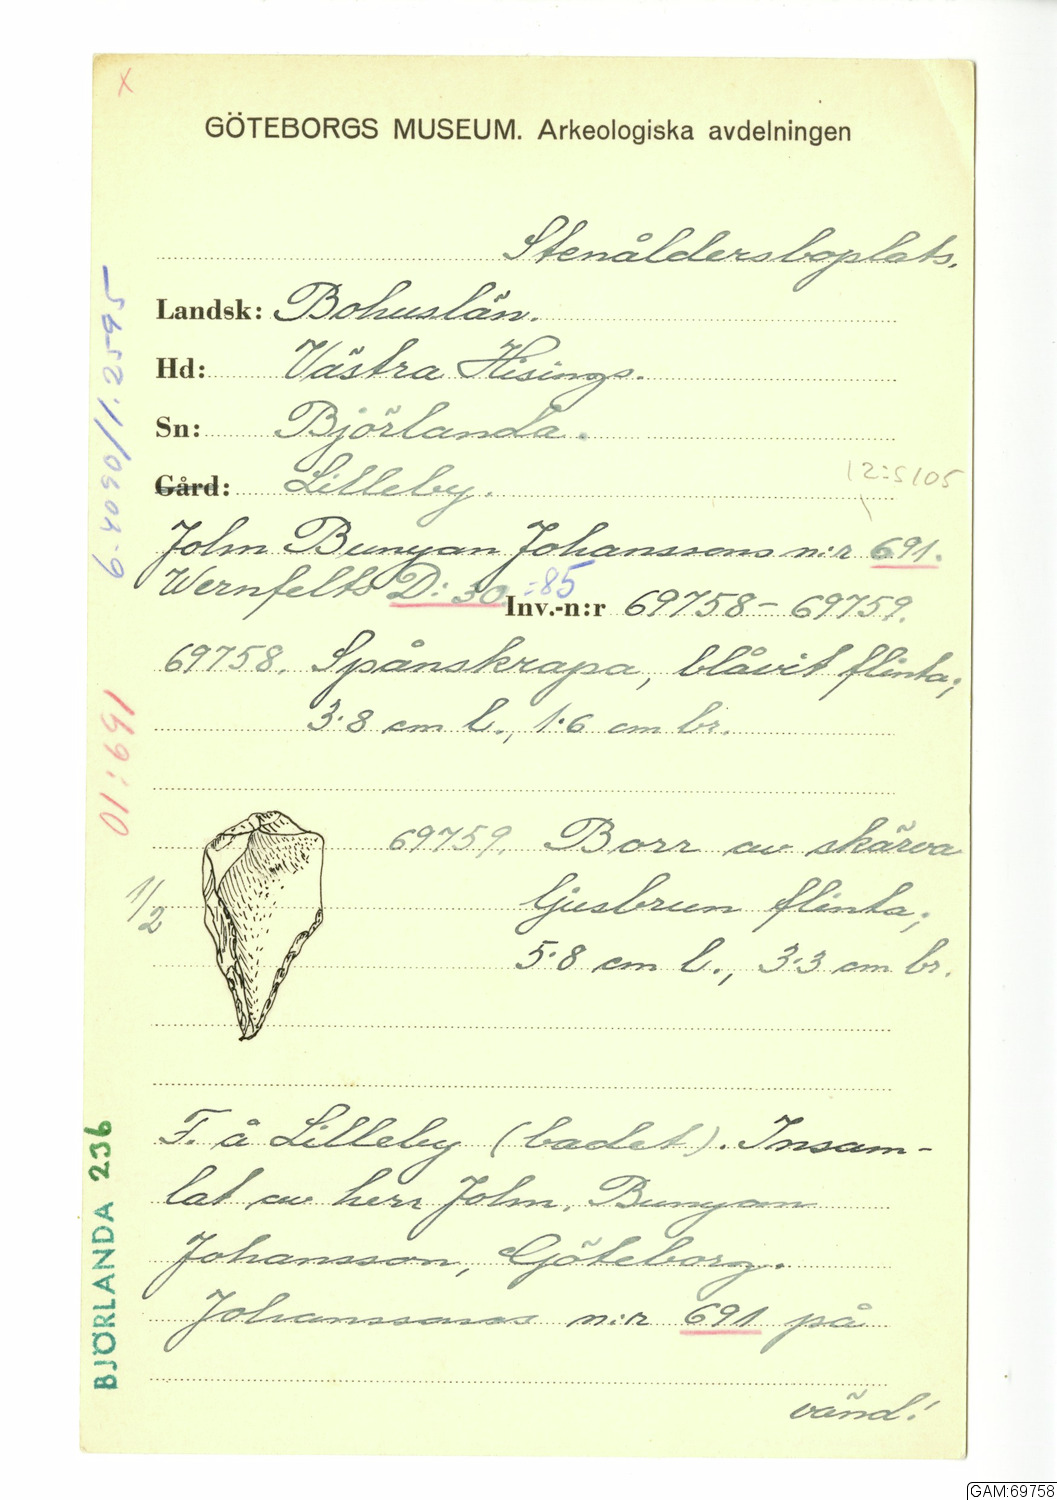 x
GÖTEBORGS MUSEUM. Arkeologiska avdelningen
Stenåldersboplats.
Landsk: Bohuslän.
Hd: Västra Hisings.
Sn: Björlanda.
12:5105
Gård: Lilleby.
John Bunyan Johanssons n:r 691.
Wernfelts D: 30 :85
Inv.-n:r 69758-69759.
69758. Spånskrapa, blåvit flinta;
3.8 cm l., 1.6 cm br.
69759. Borr av skärva
ljusbrun flinta;
1/2
5.8 cm l., 3.3 cm br.
F. å Lilleby (badet). Insam-
lat av herr John, Bunyan
Johansson, Göteborg.
Johanssons n:r 691 på
vänd!
6.4090/1.2595
01:691
BJÖRLANDA 236
GAM:69758